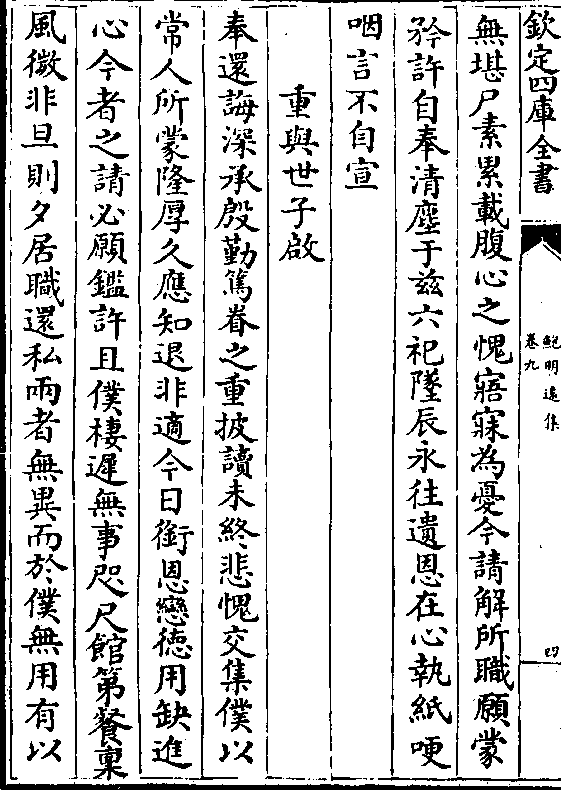 欽定四庫全書
鮑明遠集
卷九
四
無堪尸素累載腹心之愧寤寐為憂今請解所職願蒙
矜許自奉清塵于兹六祀墜辰永往遺恩在心執紙哽
咽言不自宣
重與世子啟
奉還誨深承殷勤篤眷之重披讀未終悲愧交集僕以
常人所蒙隆厚久應知退非適今日銜恩戀徳用缺進
心今者之請必願鑑許且僕棲遲無事咫尺館第餐稟
風微非旦則夕居職還私兩者無異而於僕無用有以